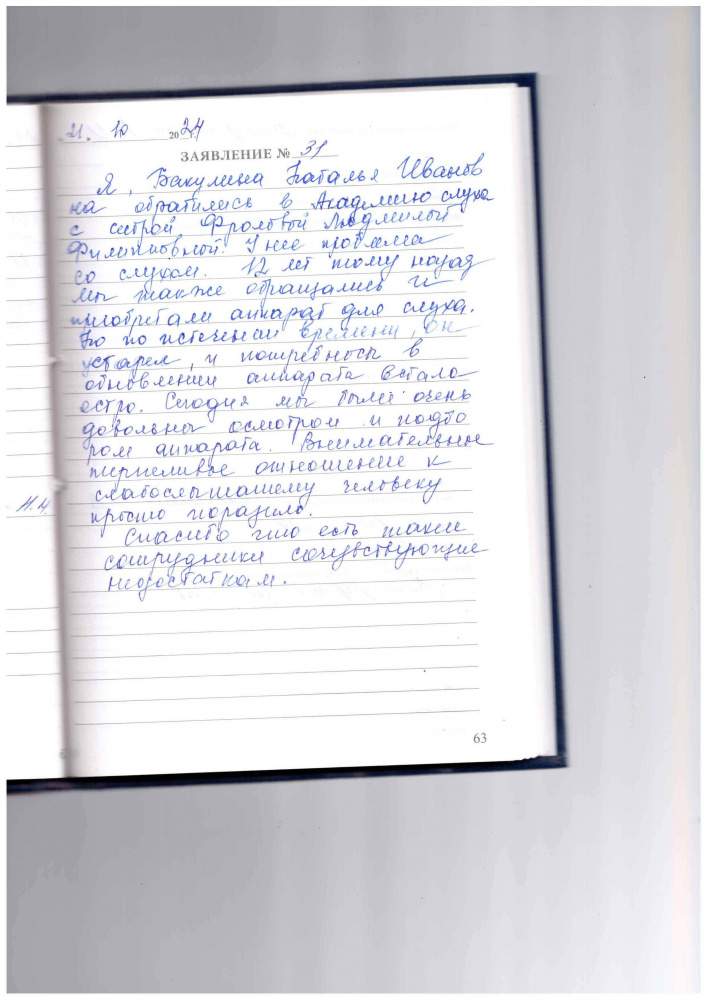 21. 10 2024 г.
ЗАЯВЛЕНИЕ № 31
Я, Бакулина Наталья Иванов
на обратились в Академию слуха
с сетрой Фроловой Людмилой
Филипповной. У нее проблема
со слухом. 12 лет тому назад
мы также обращались и
приобретали аппарат для слуха.
Но по истечении времени, он
устарел, и потребность в
обновлении аппарата встала
остро. Сегодня мы были очень
довольны осмотром и подбо
ром аппарата. Внимательное
терпеливое отношение к
слабослышащему человеку
просто поразило.
Спасибо что есть такие
сотрудники сочувствующие
недостаткам.
63